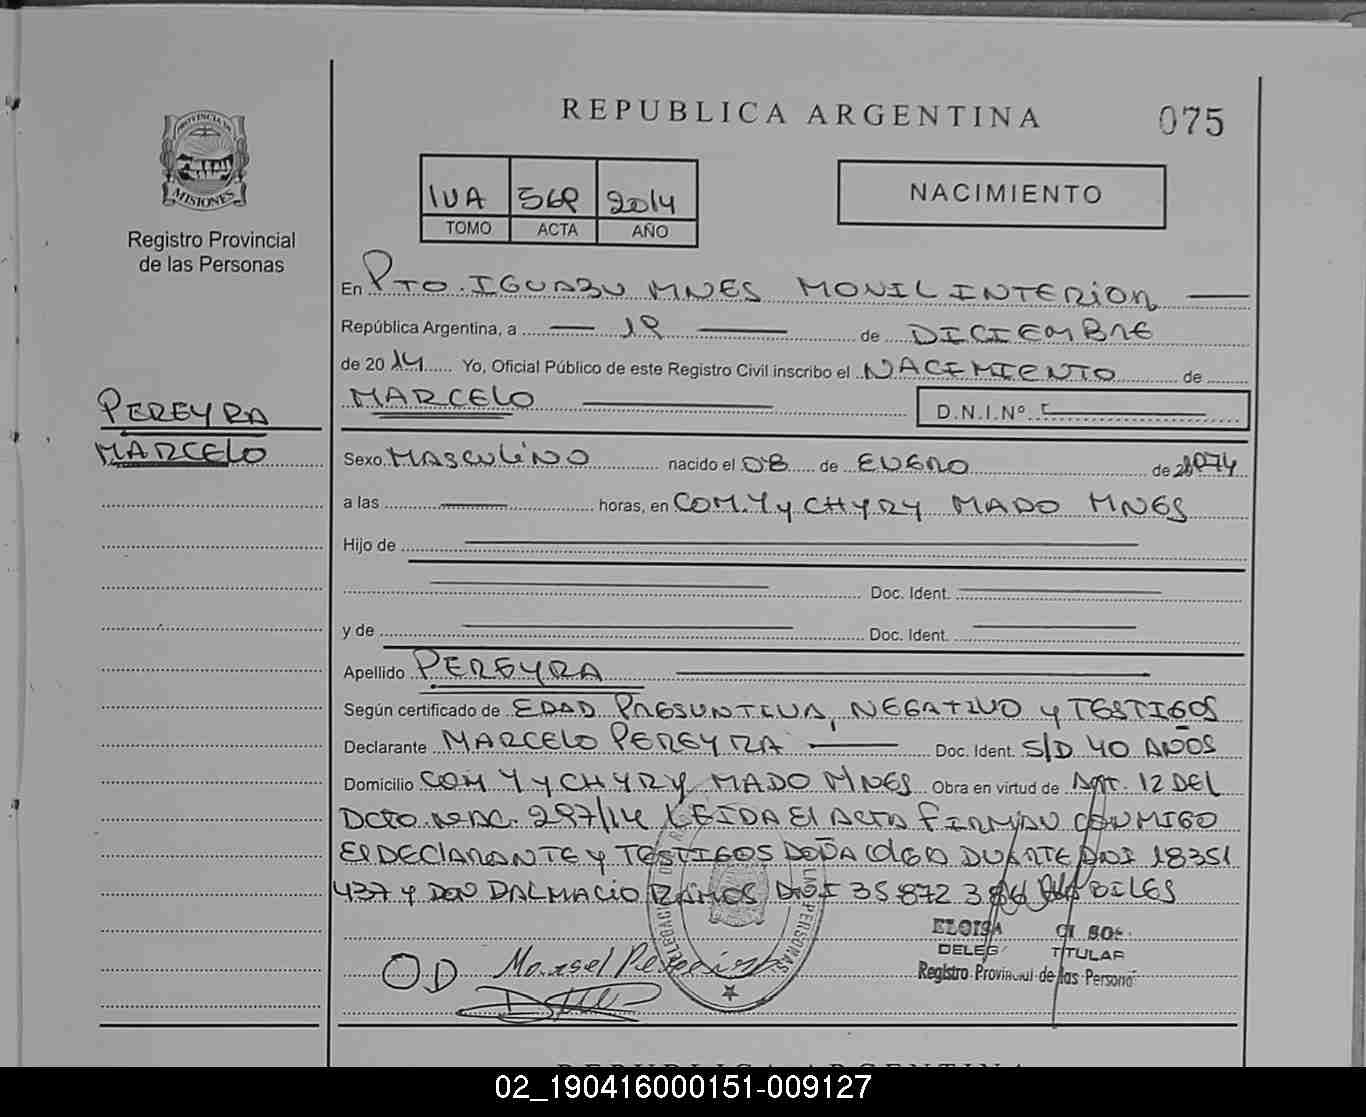 REPUBLICA ARGENTINA
075
PROVINCIA DE MISIONES
Registro Provincial
de las Personas
IVA 569 2014
TOMO ACTA AÑO
NACIMIENTO
En PTO. IGUAZU MNES MOVIL INTERIOR
República Argentina, a 19 de DICIEMBRE
de 2014 Yo, Oficial Público de este Registro Civil inscribo el NACIMIENTO de
MARCELO D.N.I.Nº
PEREYRA
MARCELO
Sexo MASCULINO nacido el 08 de ENERO de 1974
a las horas, en COM. Y y CHYRY MADO MNES
Hijo de
Doc. Ident.
y de Doc. Ident.
Apellido PEREYRA
Según certificado de EDAD PRESUNTIVA, NEGATIVO y TESTIGOS
Declarante MARCELO PEREYRA Doc. Ident. S/D 40 AÑOS
Domicilio COM Y y CHYRY MADO MNES Obra en virtud de ART. 12 DEL
DCTO. NAC. 297/14 LEIDA El ACTA FIRMAN CONMIGO
El DEClARANTE y TESTIGOS DOÑA OlGA DUARTE DNI 18351
437 y DON DALMACIO RAMOS DNI 35 872 386 HABILES
ELOISA
DELEG TITULAR
Registro Provincial de las Persona
OD
REPUBLICA ARGENTINA
02_190416000151-009127